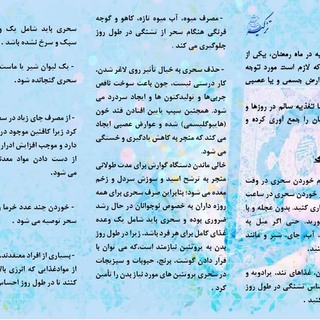 ـه در ماه رمضان، یکی از
که لازم است مورد توجه
ـوارض جسمی و یا عصبی

ـا تغذیه سالم در روزها و
ـان را جمع آوری کرده و

خوردن سحری در وقت
خوردن سحری در ساعت
ـاری کنید. بدون عجله و با
ـوید. حتی اگر میل به
آب، چای، شیر و مانند

ـن غذاهای تند، پرادویه و
ـاس تشنگی در طول روز

- مصرف میوه، آب میوه تازه، کاهو و گوجه
فرنگی هنگام سحر از تشنگی در طول روز
جلوگیری می کند .

- حذف سحری به خیال تأثیر روی لاغر شدن،
کار درستی نیست. چون باعث سوخت ناقص
چربی‌ها و تولیدکتون ها و ایجاد سردرد می
شود. همچنین سبب پایین افتادن قند خون
(هایپوگلیسمی) شده و عوارض عصبی ایجاد
می کند که منجر به کاهش یادگیری و خستگی
می شود.
خالی ماندن دستگاه گوارش برای مدت طولانی
منجر به ترشح اسید و سوزش سردل و زخم
معده می شود؛ بنابراین صرف سحری برای همه
روزه داران به خصوص نوجوانان در حال رشد
ضروری بوده و سحری باید شامل یک وعده
غذای کامل برای هر فرد باشد. زیرا در طول روز
بدن به پروتئین نیازمند است،که می توان با
قرار دادن گوشت، برنج، حبوبات و سبزیجات
در سحری پروتئین های مورد نیاز بدن را تأمین
کرد .

سحری باید شامل یک و
سبک و سرخ نشده باشد .

- یک لیوان شیر با ماست
گنجانده شود.

- از مصرف چای زیاد در سـ
کرد زیرا کافئین موجود در
دارد و موجب افزایش ادرار
از دست دادن مواد معد
می شود.

- خوردن چند عدد خرما و
سحر توصیه می شود .

-بسیاری از افراد معتقدند،
از موادغذایی که انرژی بالا
کنند تا در طول روز احساس